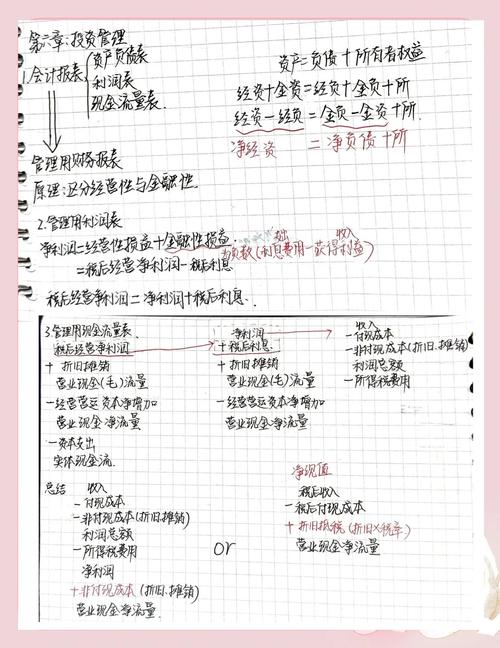 第二章:投资管理
1.会计报表 { 资产负债表
利润表
现金流量表
资产=负债+所有者权益
经资+金资=经负+金负+所
经资-经负=金负-金资+所
净经资 = 净负债+所
管理用财务报表
原理:区分经营性与金融性.
2.管理用利润表
净利润=经营性损益+金融性损益.
支出 收入
负数(利息费用-获得利益)
=税后经营净利润-税后利息
税后经营净利润=净利润+税后利息.
3.管理用现金流量表
税后经营净利润
+ 折旧摊销
营业现金(毛)流量
-经营营运资本净增加
营业现金净流量
-资本支出
实体现金流.
净利润
+税后利息
+ 折旧摊销
营业现金(毛)流量
-经营营运资本净增加
营业现金净流量
收入
-付现成本
-非付现成本(折旧.摊销)
利润总额
-所得税费用
总结 收入
-付现成本
-非付现成本(折旧.摊销)
利润总额
-所得税费用
净利润
+非付现成本(折旧.摊销)
营业现金净流量.
or
净现值
税后收入
-税后付现成本
+折旧抵税(折旧×税率)
营业现金净流量